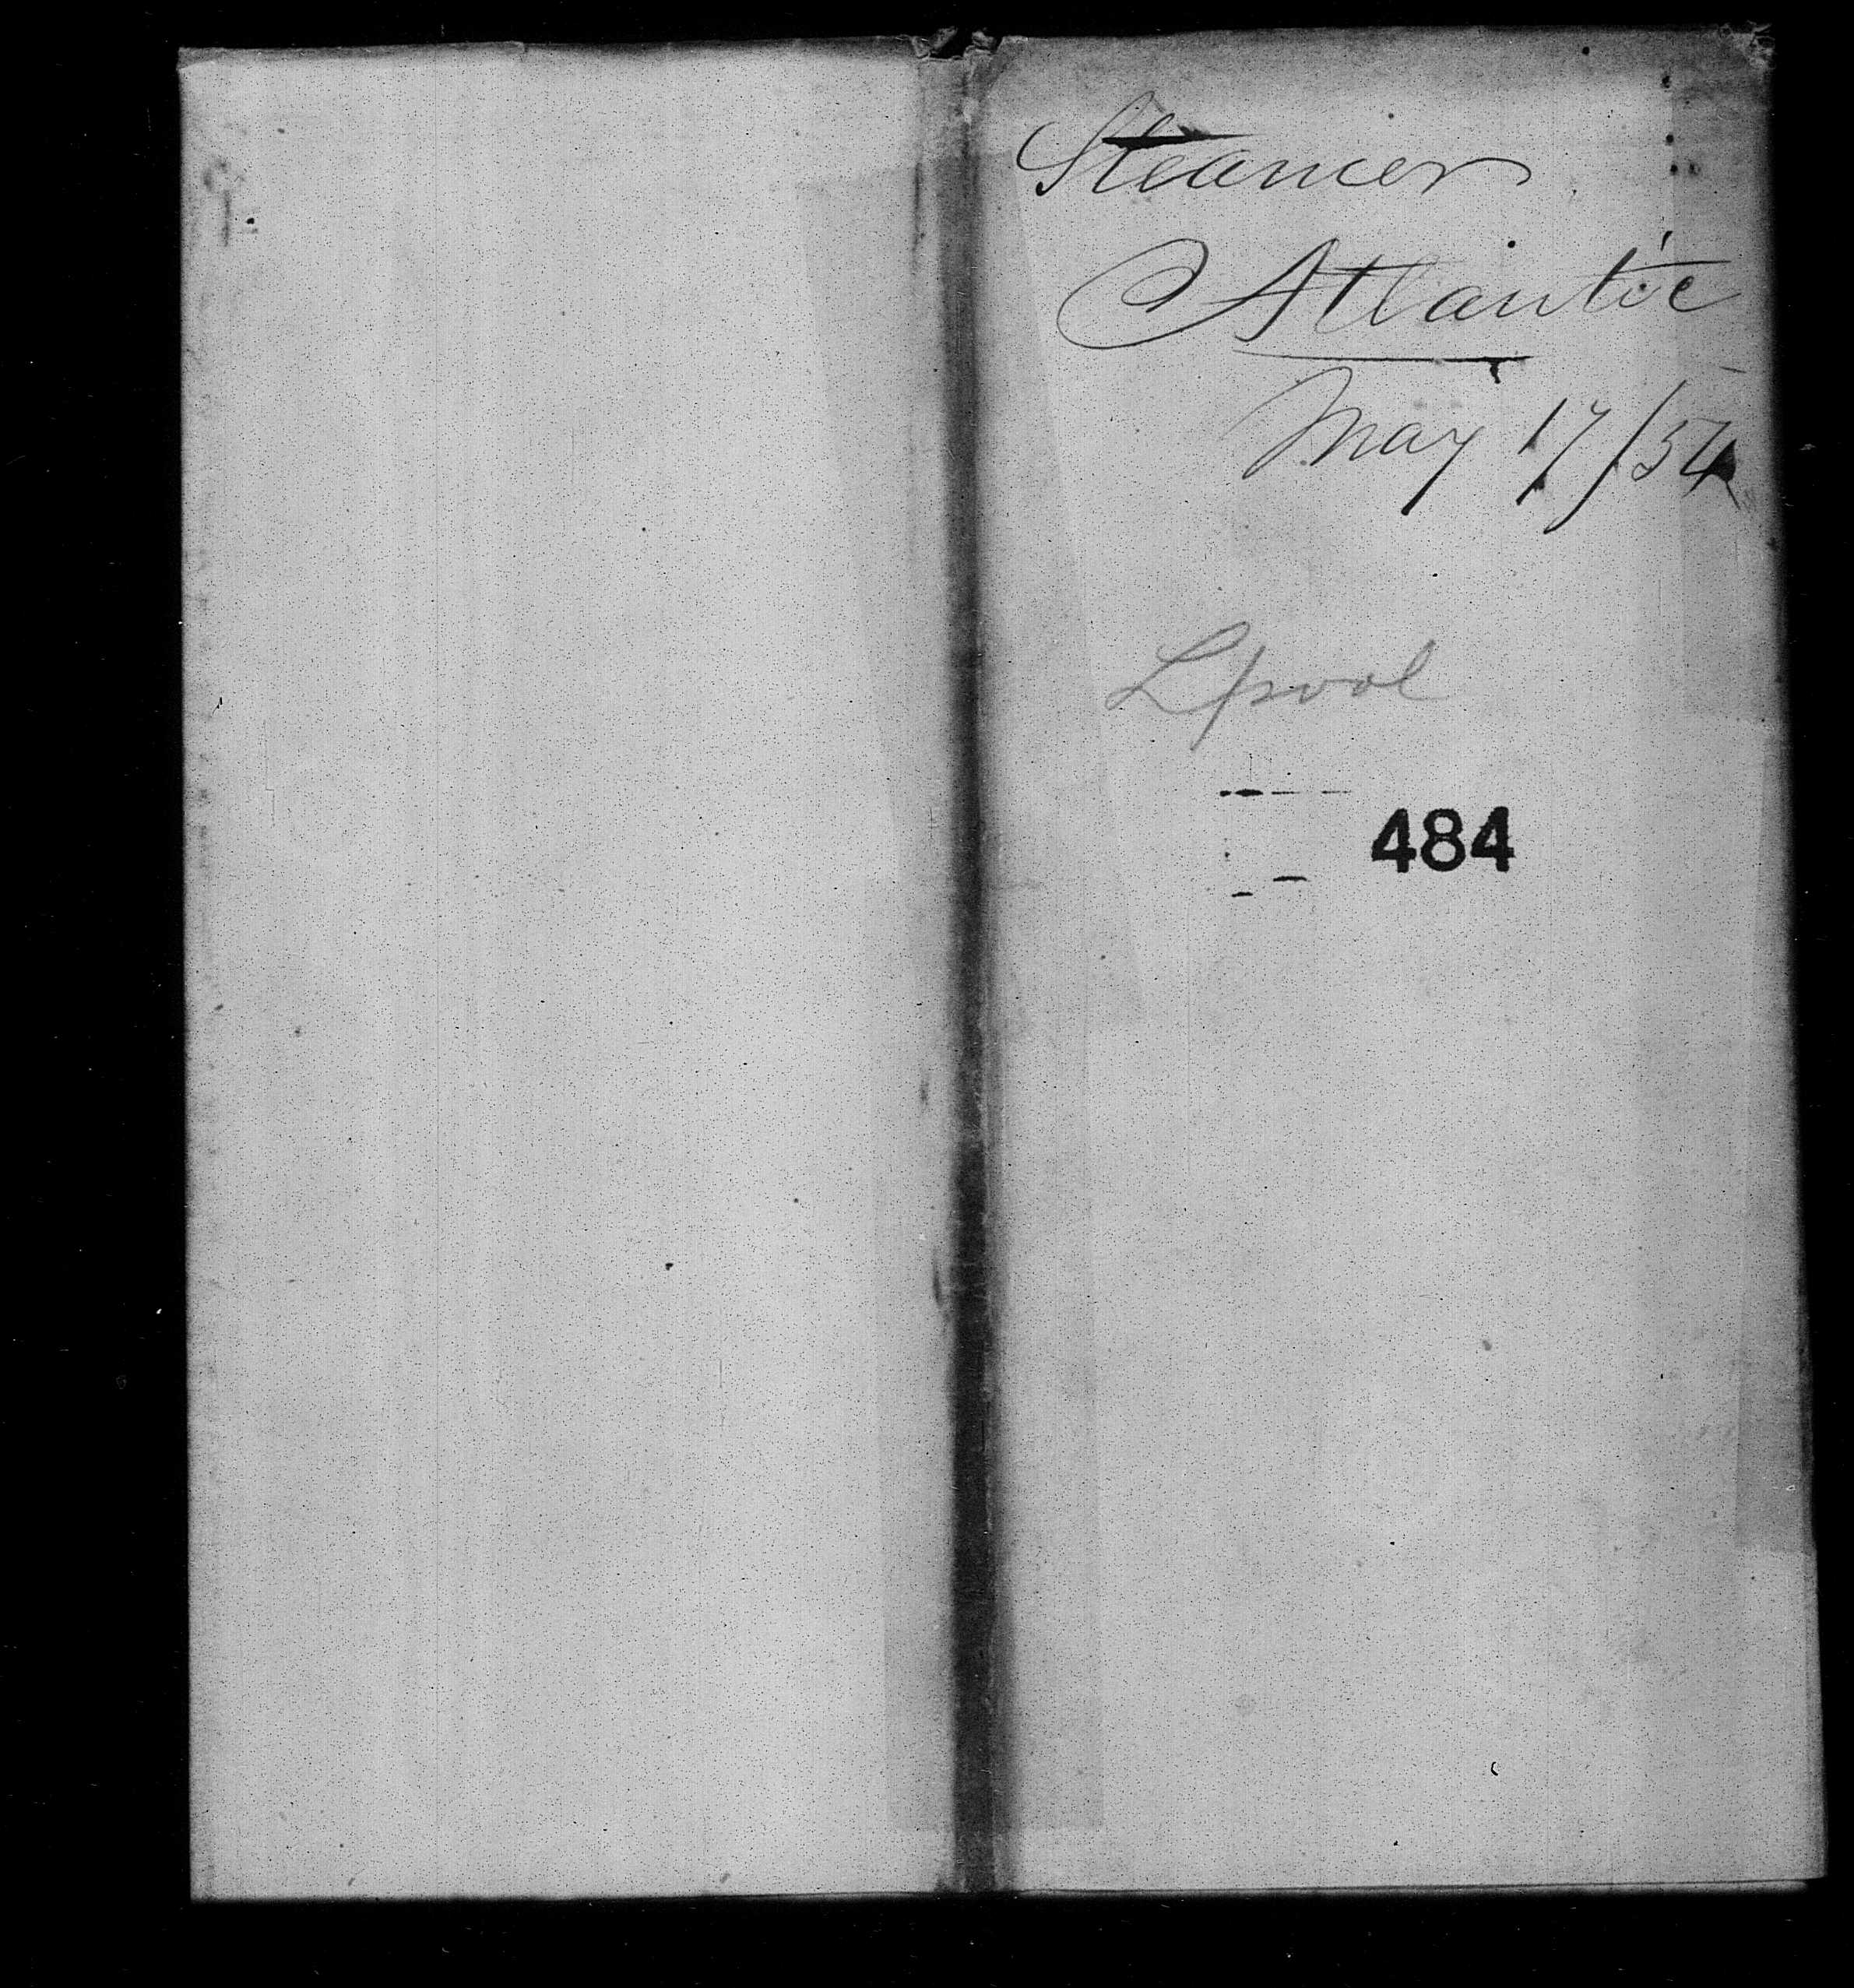 Steamer
Atlantic
May 17/54
Lpool
484